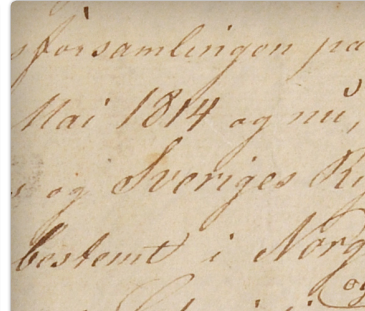 sforsamlingen paa
Mai 1814 og nu,
s og Sveriges Ri
bestemt i Norg
og